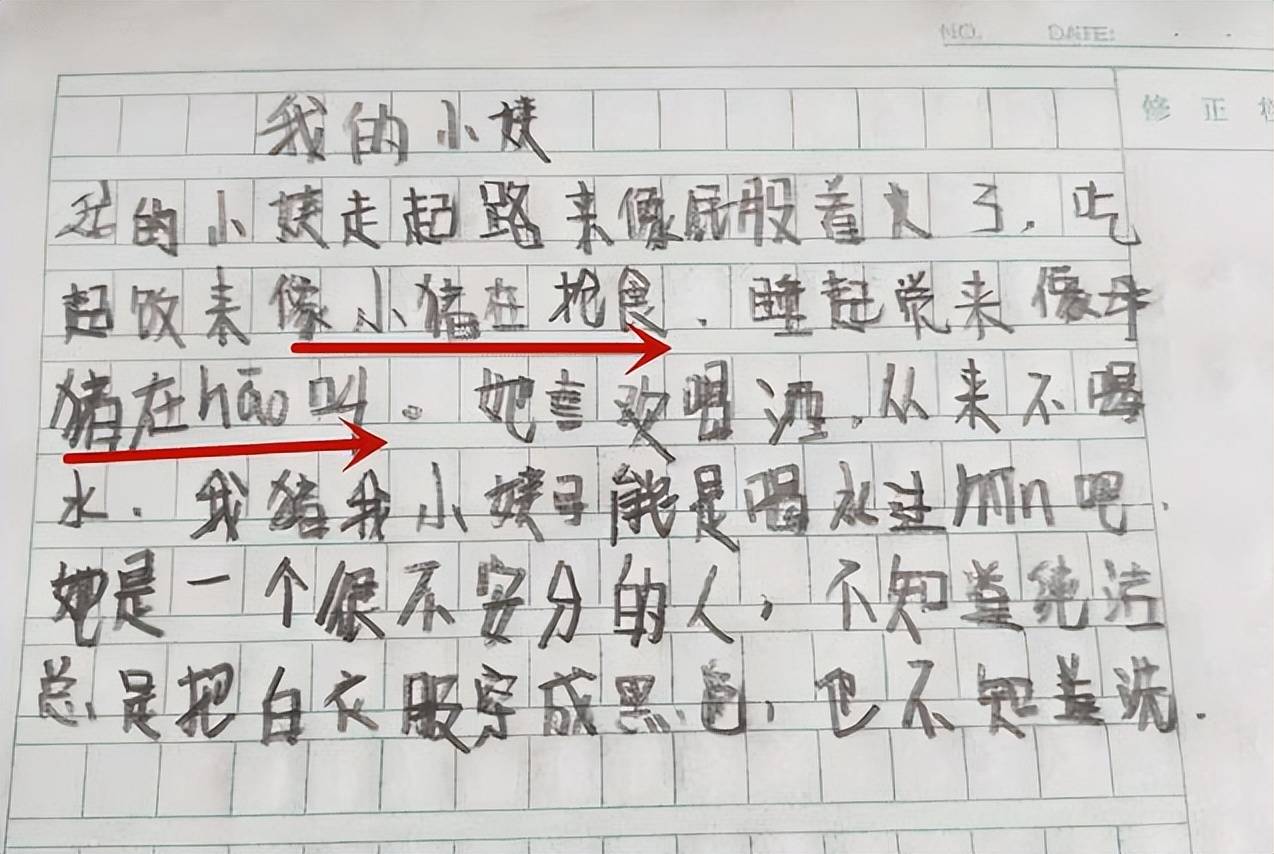 NO. DATE:
修正
我的小姨
我的小姨走起路来像屁股着火了，吃
起饭来像小猪在抢食．睡起觉来像母
猪在hāo叫。她喜欢喝酒．从来不喝
水．我猪我小姨子能是喝水过mǐn吧．
她是一个很不安分的人，不知道纯洁
总是把白衣服穿成黑色，也不知道洗．